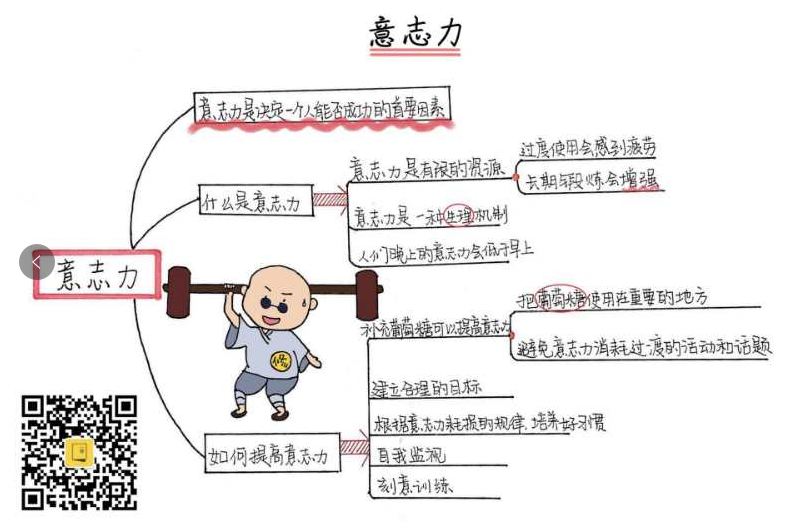 意志力
意志力是决定一个人能否成功的首要因素
什么是意志力
意志力是有限的资源
过度使用会感到疲劳
长期锻炼会增强
意志力是一种生理机制
人们晚上的意志力会低于早上
意志力
修
如何提高意志力
补充葡萄糖可以提高意志力
把葡萄糖使用在重要的地方
避免意志力消耗过渡的活动和话题
建立合理的目标
根据意志力耗损的规律,培养好习惯
自我监视
刻意训练